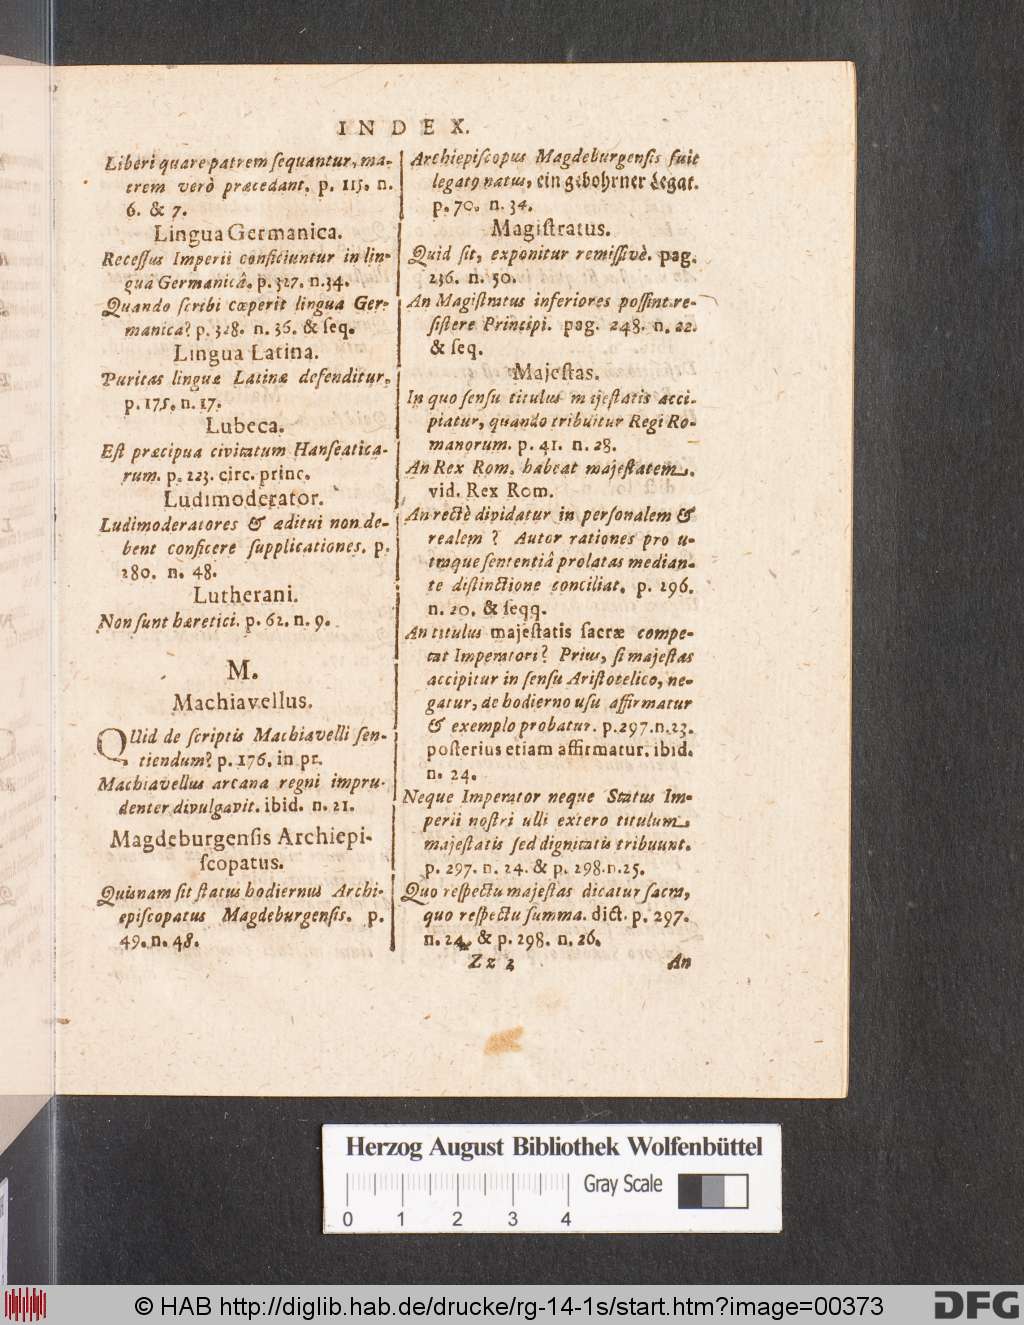 INDEX.
Liberi quare patrem sequantur, ma-
trem verò præcedant, p. 115. n.
6. & 7.
Lingua Germanica.
Recessus Imperii conficiuntur in lin-
guâ Germanicâ, p. 327. n.34.
Quando scribi cœperit lingua Ger-
manica? p. 328. n. 36. & seq.
Lingua Latina.
Puritas linguæ Latinæ defenditur,
p. 175, n. 17.
Lubeca.
Est præcipua civitatum Hanseatica-
rum. p. 223. circ. princ.
Ludimoderator.
Ludimoderatores & æditui non de-
bent conficere supplicationes, p.
280. n. 48.
Lutherani.
Non sunt hæretici. p. 62. n. 9.
M.
Machiavellus.
QUid de scriptis Machiavelli sen-
tiendum? p. 176. in pr.
Machiavellus arcana regni impru-
denter divulgavit. ibid. n. 21.
Magdeburgensis Archiepi-
scopatus.
Quisnam sit status hodiernus Archi-
episcopatus Magdeburgensis. p.
49. n. 48.
Archiepiscopus Magdeburgensis fuit
legatꝰ natus, ein gebohrner Legat.
p. 70. n. 34.
Magistratus.
Quid sit, exponitur remissivè. pag.
236. n. 50.
An Magistratus inferiores possint re-
sistere Principi. pag. 248. n. 22.
& seq.
Majestas.
In quo sensu titulus majestatis acci-
piatur, quando tribuitur Regi Ro-
manorum. p. 41. n. 28.
An Rex Rom. habeat majestatem,
vid. Rex Rom.
An rectè dividatur in personalem &
realem? Autor rationes pro u-
traque sententiâ prolatas median-
te distinctione conciliat, p. 296.
n. 20. & seqq.
An titulus majestatis sacræ compe-
tat Imperatori? Prius, si majestas
accipitur in sensu Aristotelico, ne-
gatur, de hodierno usu affirmatur
& exemplo probatur. p.297.n.23.
posterius etiam affirmatur, ibid.
n. 24.
Neque Imperator neque Status Im-
perii nostri ulli extero titulum
majestatis sed dignitatis tribuunt.
p. 297. n. 24. & p. 298.n.25.
Quo respectu majestas dicatur sacra,
quo respectu summa. dict. p. 297.
n. 24. & p. 298. n. 26.
Zz 2 An
Herzog August Bibliothek Wolfenbüttel
Gray Scale
0 1 2 3 4
© HAB http://diglib.hab.de/drucke/rg-14-1s/start.htm?image=00373
DFG